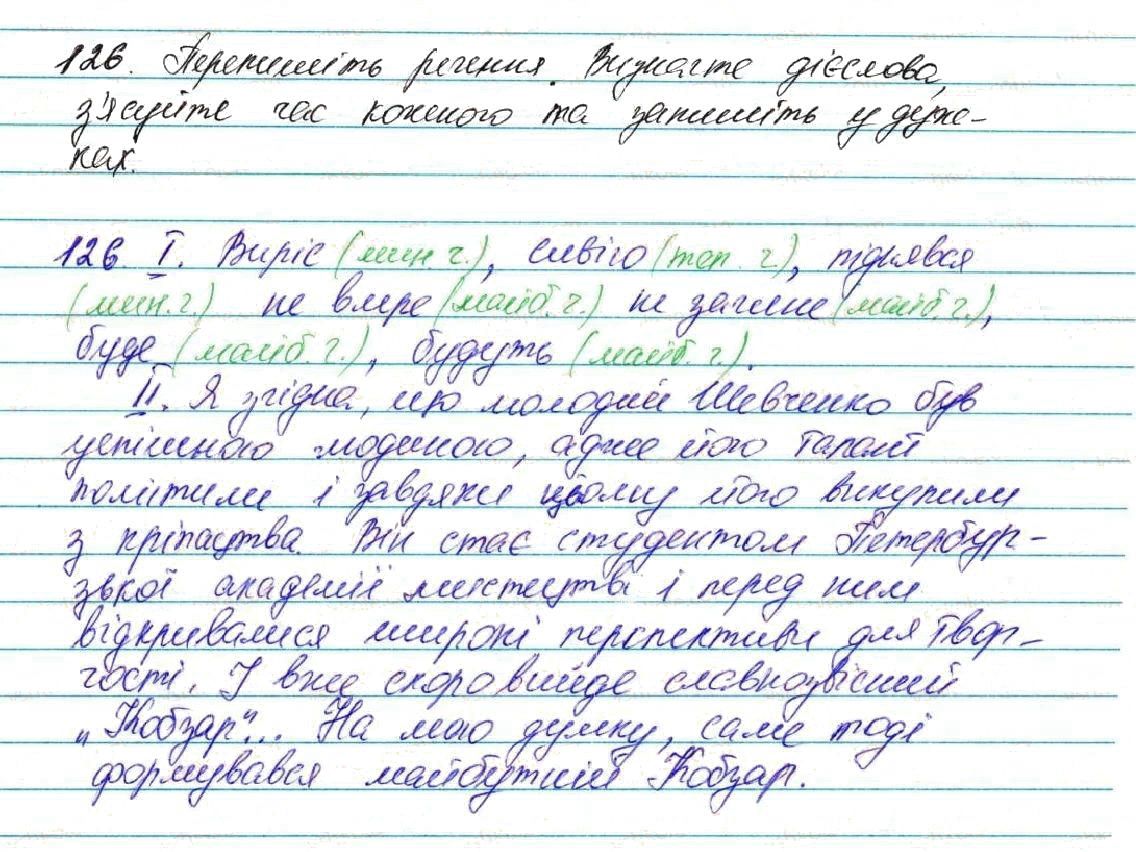 126. Перепишіть речення. Визначте дієслова,
з'ясуйте час кожного та запишіть у дуж-
ках.
126. I. Виріс (мин. ч.), сивіло (теп. ч.), піднявся
(мин. ч.) не вмре (майб. ч.) не загине (майб. ч.),
буде (майб. ч.), будуть (майб. ч.).
II. Я згідна, що молодий Шевченко був
успішною людиною, адже його талант
помітили і завдяки цьому його викупили
з кріпацтва. Він стає студентом Петербур-
зької академії мистецтв і перед ним
відкривалися широкі перспективи для твор-
чості. І вже скоро вийде славнозвісний
„Кобзар"... На мою думку, саме тоді
формувався майбутній Кобзар.